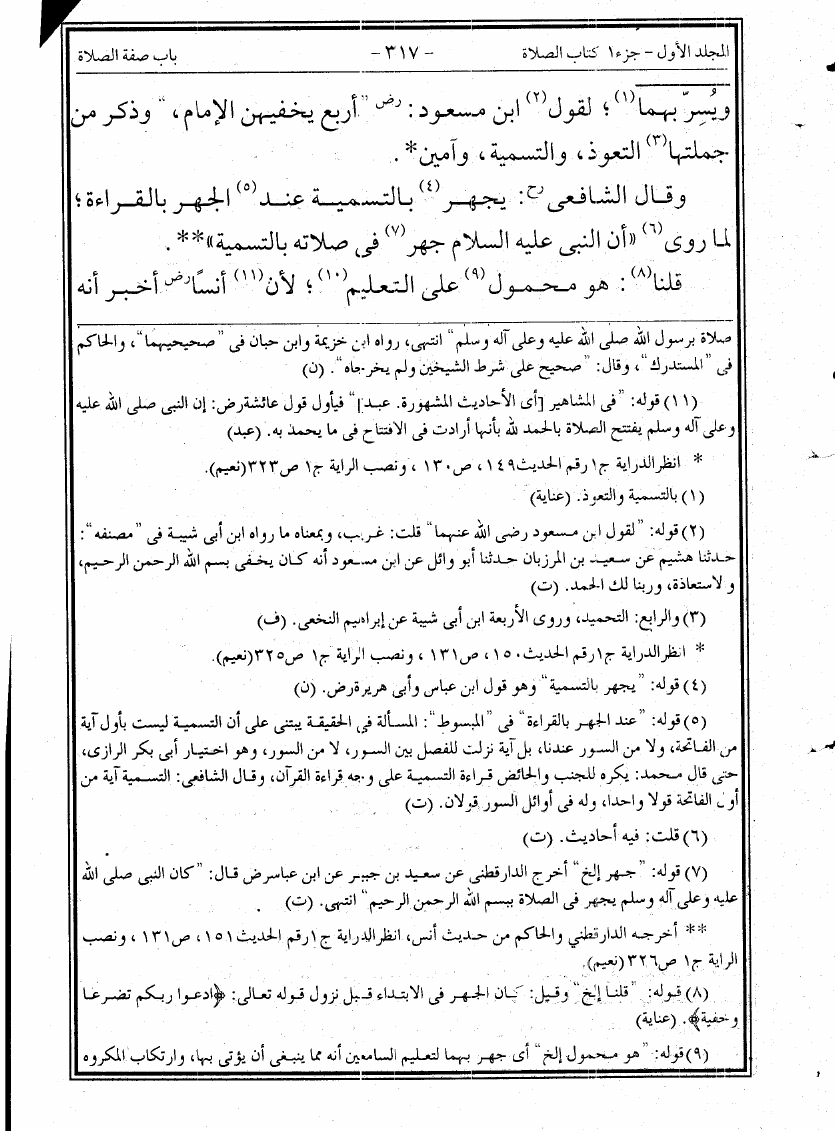 المجلد الأول - جزء١ كتاب الصلاة - ٣١٧ - باب صفة الصلاة
ويُسِرّ بهما(١)؛ لقول(٢) ابن مسعود: رض "أربع يخفيهن الإمام،" وذكر من
جملتها(٣) التعوذ، والتسمية، وآمين*.
وقال الشافعى رح: يجهر(٤) بالتسمية عند(٥) الجهر بالقراءة؛
لما روى(٦) «أن النبى عليه السلام جهر(٧) فى صلاته بالتسمية»**.
قلنا(٨): هو محمول(٩) على التعليم(١٠)؛ لأن(١١) أنسًا رض أخبر أنه
صلاة برسول الله صلى الله عليه وعلى آله وسلم" انتهى، رواه ابن خزيمة وابن حبان فى "صحيحيهما"، والحاكم
فى "المستدرك"، وقال: "صحيح على شرط الشيخين ولم يخرجاه". (ن)
(١١) قوله: "فى المشاهير [أى الأحاديث المشهورة. عبد]" فيأول قول عائشة رض: إن النبى صلى الله عليه
وعلى آله وسلم يفتتح الصلاة بالحمد لله بأنها أرادت فى الافتتاح فى ما يحمد به. (عبد)
* انظر الدراية ج١ رقم الحديث ١٤٩، ص١٣٠، ونصب الراية ج١ ص٣٢٣ (نعيم).
(١) بالتسمية والتعوذ. (عناية)
(٢) قوله: "لقول ابن مسعود رضى الله عنهما" قلت: غريب، وبمعناه ما رواه ابن أبى شيبة فى "مصنفه":
حدثنا هشيم عن سعيد بن المرزبان حدثنا أبو وائل عن ابن مسعود أنه كان يخفى بسم الله الرحمن الرحيم،
ولاستعاذة، وربنا لك الحمد. (ت)
(٣) والرابع: التحميد، وروى الأربعة ابن أبى شيبة عن إبراهيم النخعى. (ف)
* انظر الدراية ج١ رقم الحديث ١٥٠، ص١٣١، ونصب الراية ج١ ص٣٢٥ (نعيم).
(٤) قوله: "يجهر بالتسمية" وهو قول ابن عباس وأبى هريرة رض. (ن)
(٥) قوله: "عند الجهر بالقراءة" فى "المبسوط": المسألة فى الحقيقة يبتنى على أن التسمية ليست بأول آية
من الفاتحة، ولا من السور عندنا، بل آية نزلت للفصل بين السور، لا من السور، وهو اختيار أبى بكر الرازى،
حتى قال محمد: يكره للجنب والحائض قراءة التسمية على وجه قراءة القرآن، وقال الشافعى: التسمية آية من
أول الفاتحة قولا واحدا، وله فى أوائل السور قولان. (ت)
(٦) قلت: فيه أحاديث. (ت)
(٧) قوله: "جهر إلخ" أخرج الدارقطنى عن سعيد بن جبير عن ابن عباس رض قال: "كان النبى صلى الله
عليه وعلى آله وسلم يجهر فى الصلاة ببسم الله الرحمن الرحيم" انتهى. (ت)
** أخرجه الدارقطني والحاكم من حديث أنس، انظر الدراية ج١ رقم الحديث ١٥١، ص١٣١، ونصب
الراية ج١ ص٣٢٦ (نعيم).
(٨) قوله: "قلنا إلخ" وقيل: كان الجهر فى الابتداء قبل نزول قوله تعالى: ﴿ادعوا ربكم تضرعا
وخفية﴾. (عناية)
(٩) قوله: "هو محمول إلخ" أى جهر بهما لتعليم السامعين أنه مما ينبغى أن يؤتى بها، وارتكاب المكروه